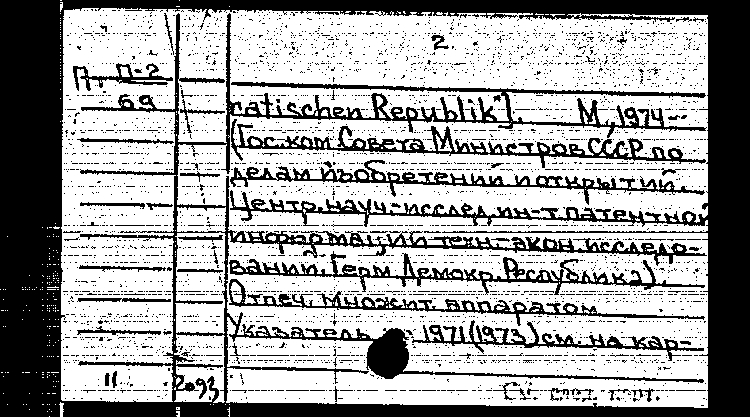 2
П-2
69
ratischen Republik"]. М., 1974--
(Гос. ком Совета Министров СССР по
делам изобретений и открытий.
Центр. науч.-исслед. ин-т патентной
информации и техн.-экон. исследо-
ваний. Герм. Демокр. Республика).
Отпеч. множит. аппаратом
Указатель 1971(1973) см. на кар-
11 2093
См. след. карт.